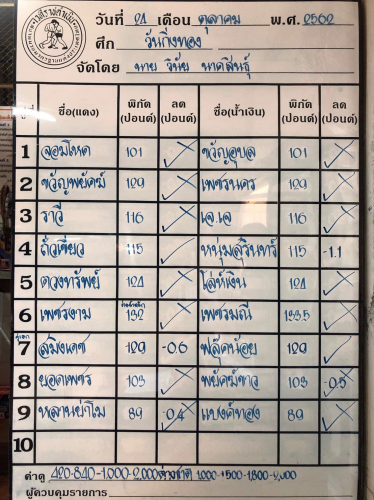 วันที่ 21 เดือน ตุลาคม พ.ศ. 2562
ศึก วันกิ่งทอง
จัดโดย นาย วินัย นาคสินธุ์
ที่ ชื่อ(แดง) พิกัด (ปอนด์) ลด (ปอนด์) ชื่อ(น้ำเงิน) พิกัด (ปอนด์) ลด (ปอนด์)
1 จอมโหด 101 ขวัญอุบล 101
2 ขวัญพยัคฆ์ 129 เพชรนคร 129
3 ราวี 116 เจ.เจ 116
4 ถั่วเขียว 115 หนุ่มสุรินทร์ 115 -1.1
5 ดวงทรัพย์ 124 โล่ห์เงิน 124
6 เพชรงาม 132 เพชรมณี 133.5
7 สมิงเดช 129 -0.6 ฟลุ๊คน้อย 129
8 ยอดเพชร 103 พยัคฆ์ขาว 103 -0.5
9 หลานย่าโม 89 -0.4 แบงค์ทอง 89
10
ค่าดู 420-840-1,000-2,000 ต่างชาติ 1,000-1500-1,800-2,000
ผู้ควบคุมรายการ